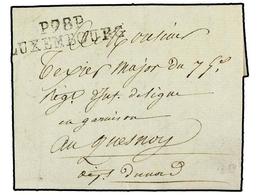 P98P
LUXEMBOURG
Monsieur
Texier major du 75e
Regt Inf. de ligne
en garnison
au Quesnoy
dépt du nord